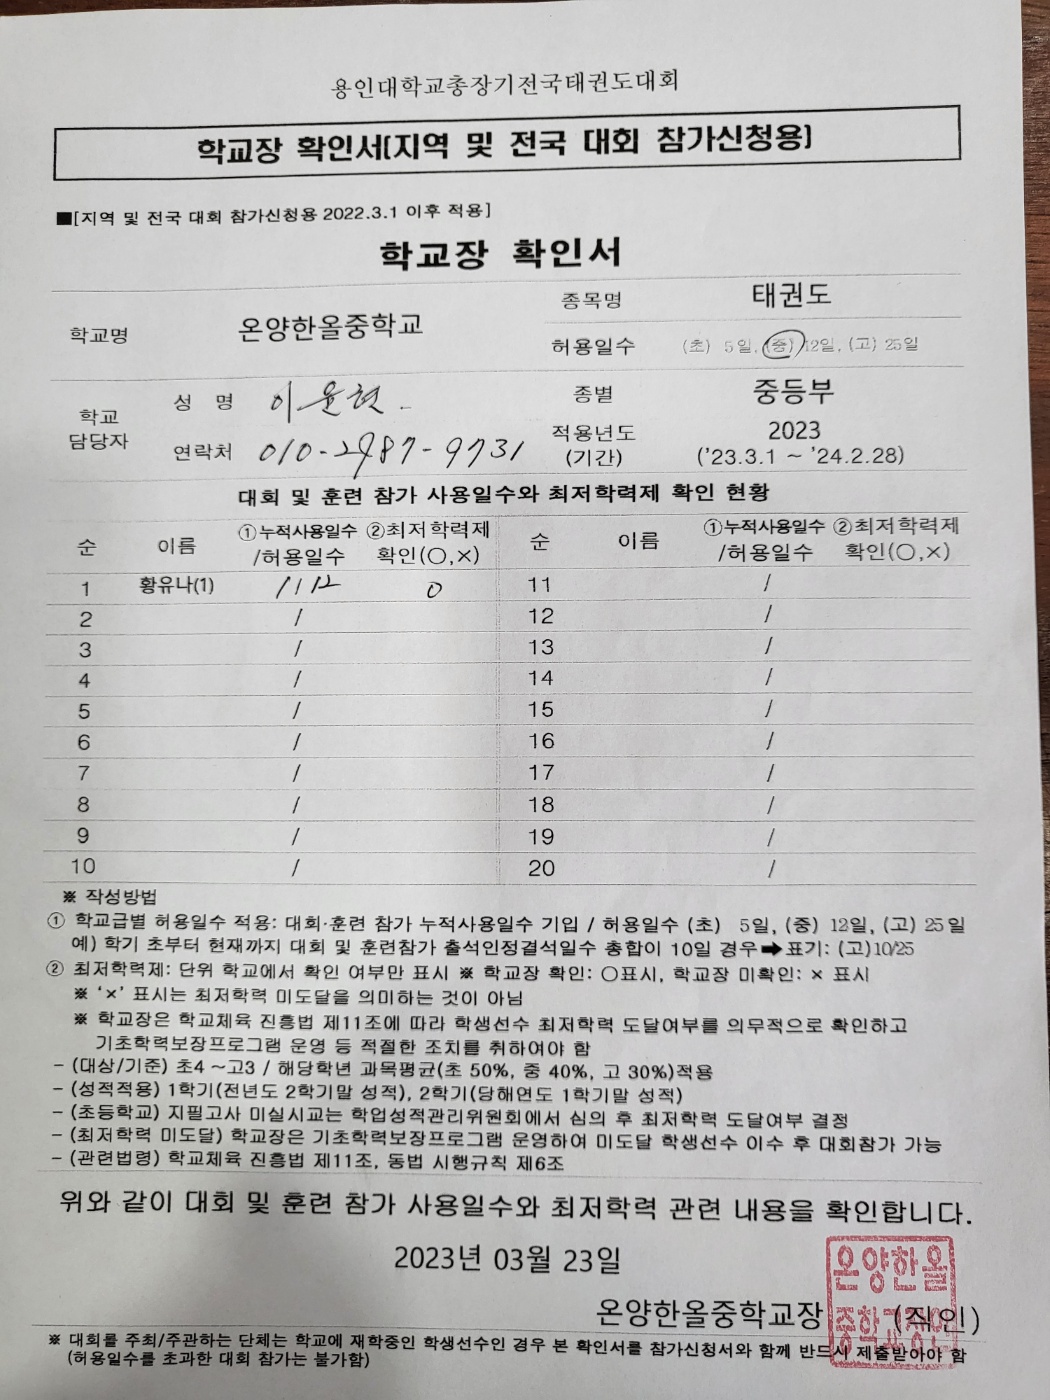 용인대학교총장기전국태권도대회
학교장 확인서[지역 및 전국 대회 참가신청용]
■[지역 및 전국 대회 참가신청용 2022.3.1 이후 적용]
학교장 확인서
학교명 온양한올중학교 종목명 태권도
허용일수 (초) 5일, (중) 12일, (고) 25일
학교 담당자 성 명 이윤현 종별 중등부
연락처 010-2987-9731 적용년도 (기간) 2023 ('23.3.1 ~ '24.2.28)
대회 및 훈련 참가 사용일수와 최저학력제 확인 현황
순 이름 ①누적사용일수 /허용일수 ②최저학력제 확인(○,×) 순 이름 ①누적사용일수 /허용일수 ②최저학력제 확인(○,×)
1 황유나(1) 1/12 0 11 /
2 / 12 /
3 / 13 /
4 / 14 /
5 / 15 /
6 / 16 /
7 / 17 /
8 / 18 /
9 / 19 /
10 / 20 /
※ 작성방법
① 학교급별 허용일수 적용: 대회·훈련 참가 누적사용일수 기입 / 허용일수 (초) 5일, (중) 12일, (고) 25일
예) 학기 초부터 현재까지 대회 및 훈련참가 출석인정결석일수 총합이 10일 경우➡표기: (고)10/25
② 최저학력제: 단위 학교에서 확인 여부만 표시 ※ 학교장 확인: ○표시, 학교장 미확인: × 표시
※ '×' 표시는 최저학력 미도달을 의미하는 것이 아님
※ 학교장은 학교체육 진흥법 제11조에 따라 학생선수 최저학력 도달여부를 의무적으로 확인하고
기초학력보장프로그램 운영 등 적절한 조치를 취하여야 함
- (대상/기준) 초4 ~고3 / 해당학년 과목평균(초 50%, 중 40%, 고 30%)적용
- (성적적용) 1학기(전년도 2학기말 성적), 2학기(당해연도 1학기말 성적)
- (초등학교) 지필고사 미실시교는 학업성적관리위원회에서 심의 후 최저학력 도달여부 결정
- (최저학력 미도달) 학교장은 기초학력보장프로그램 운영하여 미도달 학생선수 이수 후 대회참가 가능
- (관련법령) 학교체육 진흥법 제11조, 동법 시행규칙 제6조
위와 같이 대회 및 훈련 참가 사용일수와 최저학력 관련 내용을 확인합니다.
2023년 03월 23일
온양한올중학교장 (직인)
온양한올
중학교장인
※ 대회를 주최/주관하는 단체는 학교에 재학중인 학생선수인 경우 본 확인서를 참가신청서와 함께 반드시 제출받아야 함
(허용일수를 초과한 대회 참가는 불가함)